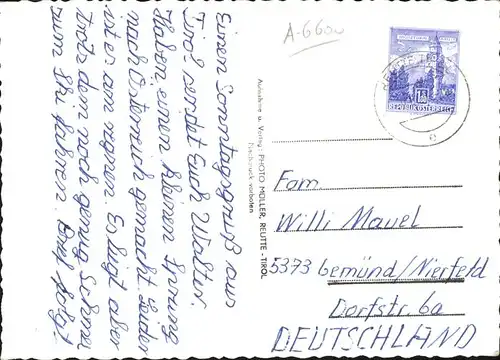 Einen Sonntagsgruß aus
Tirol sendet Euch Walter.
Haben einen kleinen Sprung
nach Österreich gemacht. Leider
ist es am regnen. Es liegt aber
trotz dem noch genug Schnee
zum Ski fahren. Brief folgt.
A-6600
REPUBLIK ÖSTERREICH
Aufnahme u. Verlag: PHOTO MÜLLER, REUTTE - TIROL
Nachdruck verboten
Fam.
Willi Mauel
5373 Gemünd/Nierfeld
Dorfstr. 6a
DEUTSCHLAND